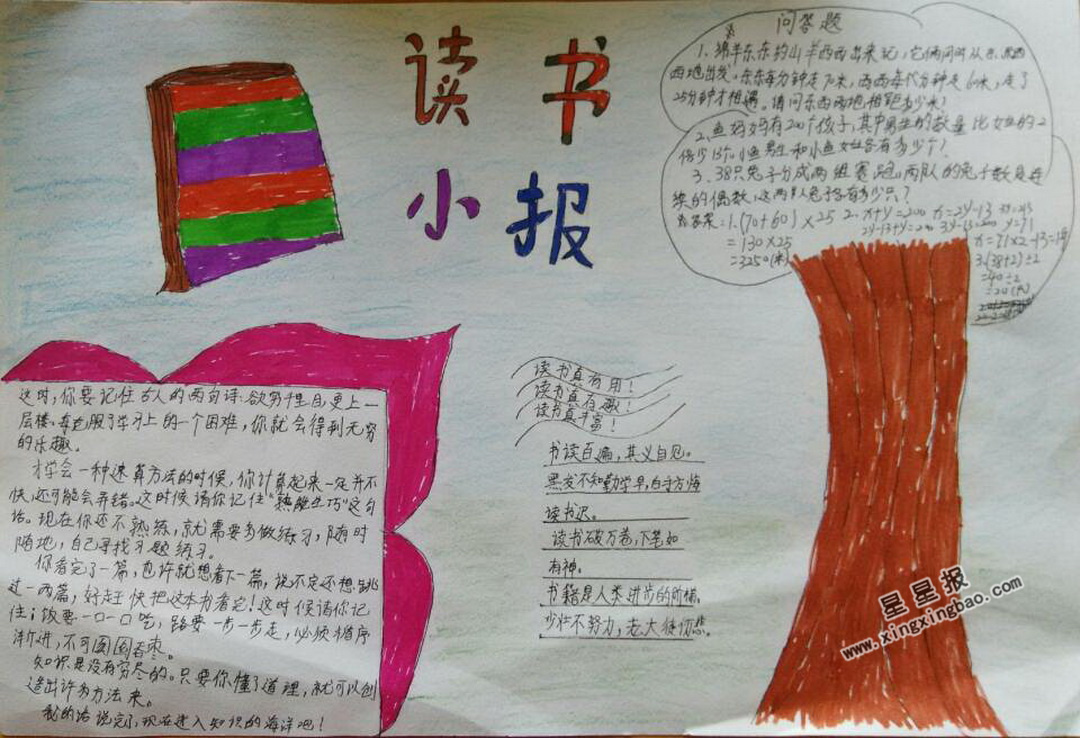 读书
小报
问答题
1、绵羊东东约山羊西西出来玩,它俩同时从东、西
西地出发,东东每分钟走70米,西西每分钟走60米,走了
25分钟才相遇。请问东西两地相距多少米?
2、鱼妈妈有200个孩子,其中男生的数量比女生的2
倍少13个,小鱼男生和小鱼女生各有多少个?
3、38只兔子分成两组赛跑,两队的兔子数是连
续的偶数,这两队兔子各有多少只?
答案:1.(70+60)×25
=130×25
=3250(米)
2. x+y=200 x=2y-13
2y-13+y=200 3y-13=200 y=71
x=71×2-13=
3.(38+2)÷2
=40÷2
=20(只)
这时,你要记住古人的两句诗:欲穷千里目,更上一
层楼。每克服了学习上的一个困难,你就会得到无穷
的乐趣。
才学会一种速算方法的时候,你计算起来一定并不
快,还可能会弄错。这时候请你记住“熟能生巧”这句
话。现在你还不熟练,就需要多做练习,随时
随地,自己寻找习题练习。
你看完了一篇,也许就想看下一篇,说不定还想跳
过一两篇,好赶快把这本书看完!这时候请你记
住:饭要一口一口吃,路要一步一步走,必须循序
渐进,不可囫囵吞枣。
知识是没有穷尽的。只要你懂了道理,就可以创
造出许多方法来。
我的话说完了,现在进入知识的海洋吧!
读书真有用!
读书真有趣!
读书真丰富!
书读百遍,其义自见。
黑发不知勤学早,白首方悔
读书迟。
读书破万卷,下笔如
有神。
书籍是人类进步的阶梯。
少壮不努力,老大徒伤悲。
星星报
www.xingxingbao.com